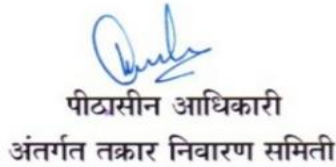 पीठासीन आधिकारी
अंतर्गत तक्रार निवारण समिती